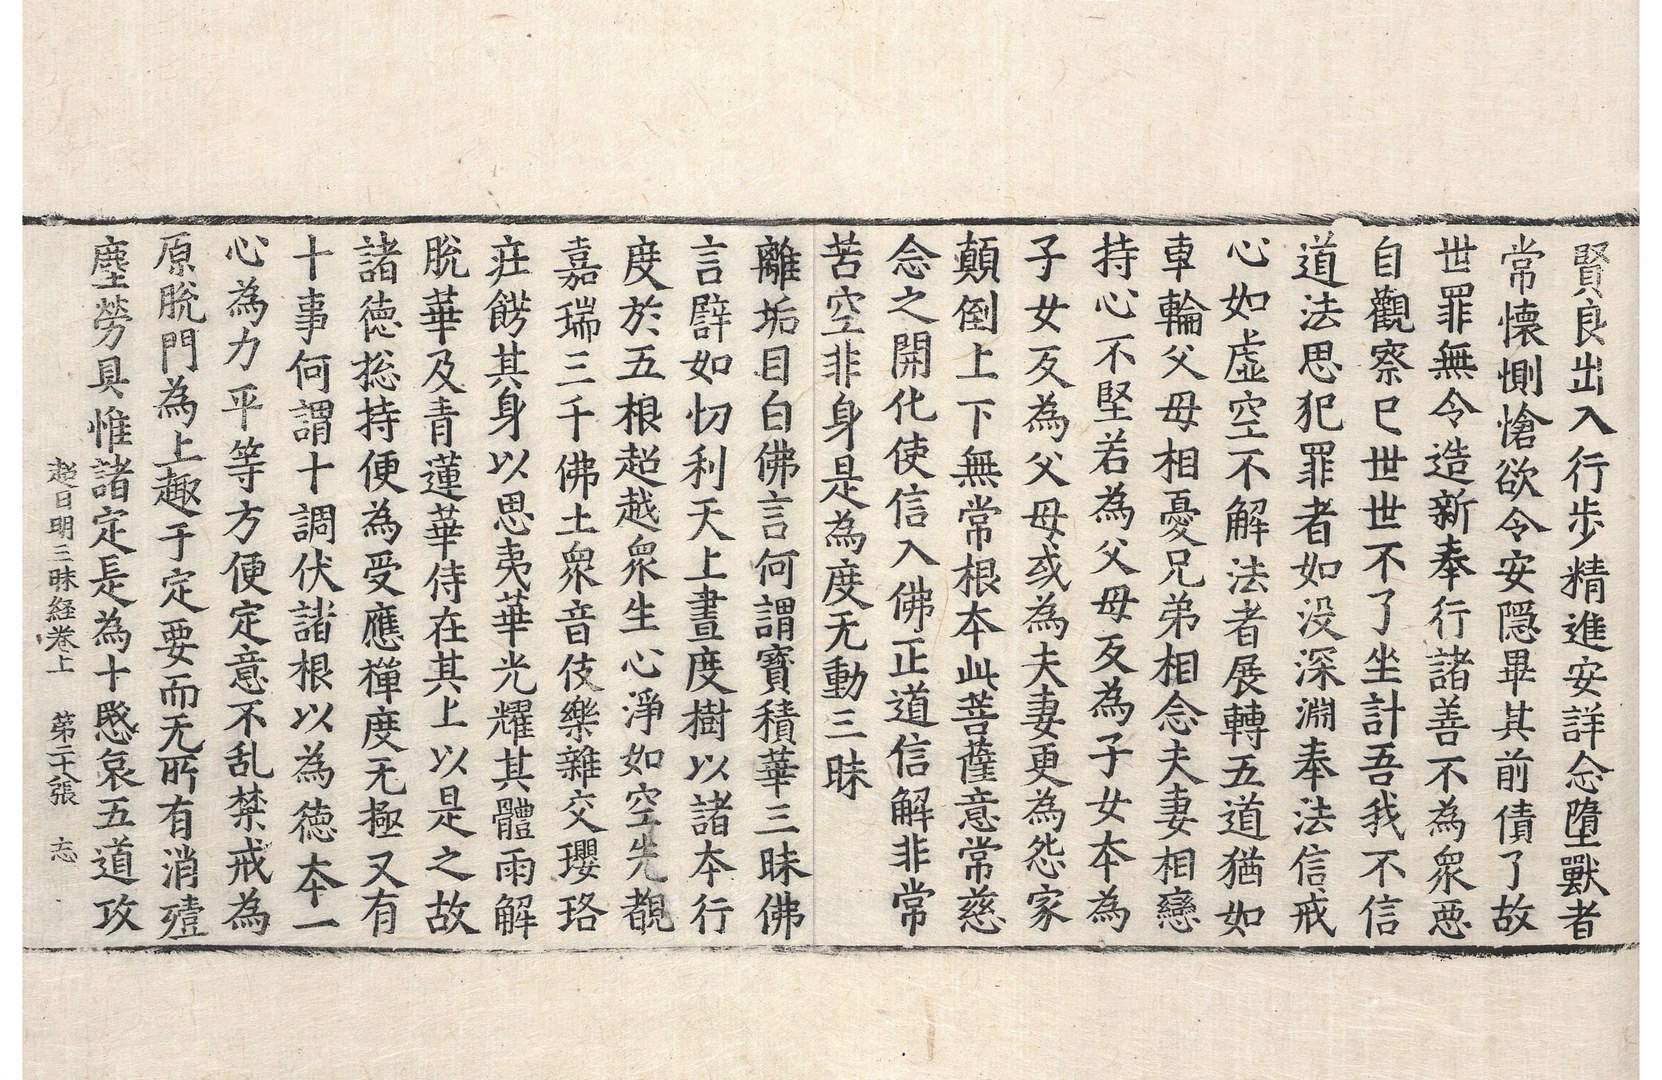 賢良出入行步精進安詳念墮獸者
常懐惻愴欲令安隠畢其前債了故
世罪無令造新奉行諸善不為衆惡
自觀察已世世不了坐計吾我不信
道法思犯罪者如没深淵奉法信戒
心如虛空不解法者展轉五道猶如
車輪父母相憂兄弟相念夫妻相戀
持心不堅若為父母反為子女本為
子女反為父母或為夫妻更為怨家
顛倒上下無常根本此菩薩意常慈
念之開化使信入佛正道信解非常
苦空非身是為度无動三昧
離垢目白佛言何謂寶積華三昧佛
言譬如忉利天上晝度樹以諸本行
度於五根超越衆生心淨如空先覩
嘉瑞三千佛土衆音伎樂雜交瓔珞
莊餝其身以思夷華光耀其體雨解
脫華及青蓮華侍在其上以是之故
諸德揔持便為受應禪度无極又有
十事何謂十調伏諸根以為德本一
心為力平等方便定意不乱禁戒為
原脫門為上趣于定要而无所有消殪
塵勞具惟諸定是為十愍哀五道攻
超日明三昧経卷上 第二十張 志